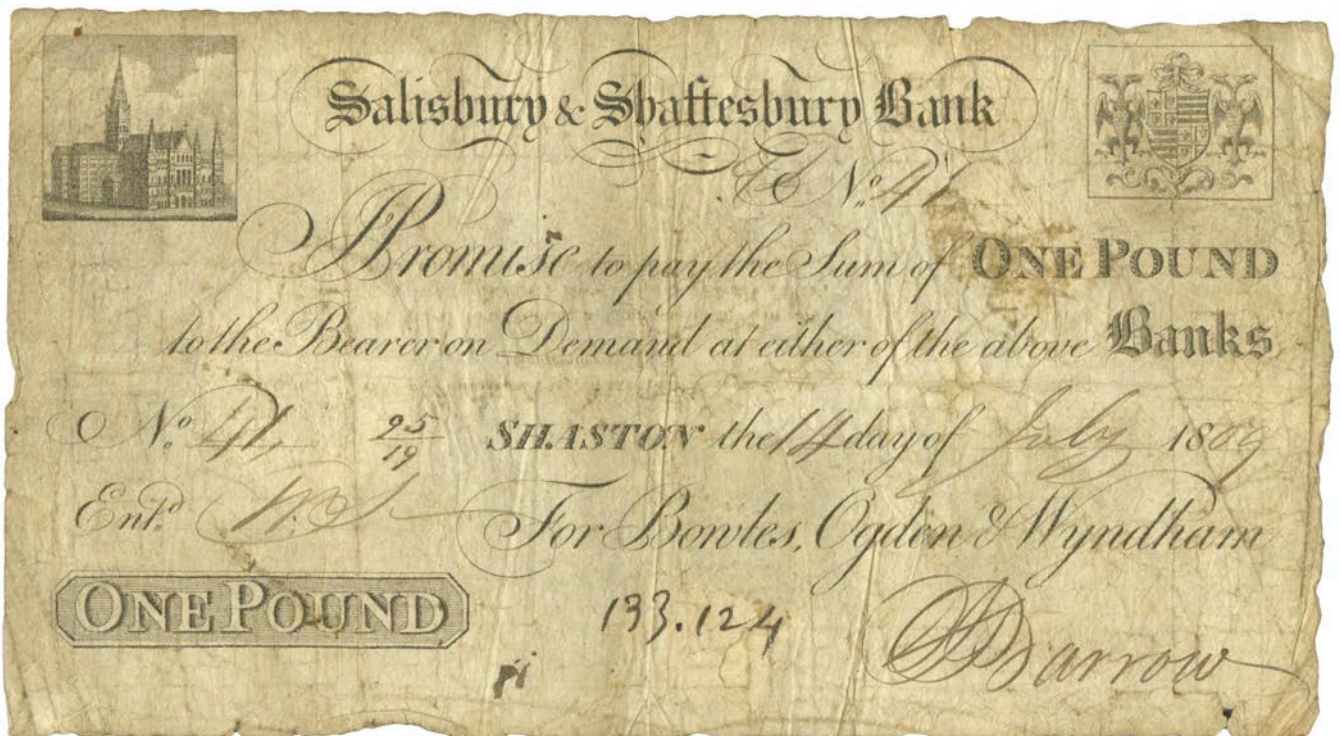 Salisbury & Shaftesbury Bank
No. 41
I Promise to pay the Sum of ONE POUND
to the Bearer on Demand at either of the above Banks
No. 41 25/19 SHASTON the 14 day of July 1809
Entd.
For Bowles, Ogden & Wyndham
ONE POUND
133.124
Barrow